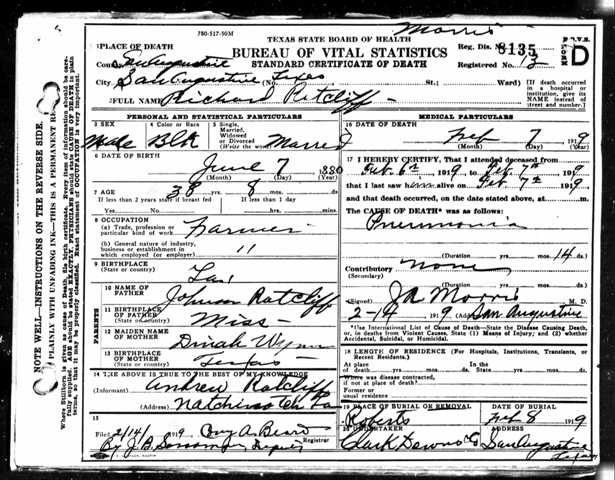 Morris
780-517-50M
TEXAS STATE BOARD OF HEALTH
BUREAU OF VITAL STATISTICS
STANDARD CERTIFICATE OF DEATH
Reg. Dis. 8135
Registered No. 13
D
PLACE OF DEATH
County San Augustine
City San Augustine Texas St.; Ward)
[If death occurred in a hospital or institution, give its NAME instead of street and number.]
FULL NAME Richard Ratcliff
PERSONAL AND STATISTICAL PARTICULARS
3 SEX Male
4 Color or Race Blk
5 Single, Married, Widowed or Divorced (Write the word) Married
6 DATE OF BIRTH
June 7 1880
(Month) (Day) (Year)
7 AGE 38 yrs. 8 mos. ds.
If less than 2 years state if breast fed If less than 1 day
Yes No hrs. min.
8 OCCUPATION
(a) Trade, profession or particular kind of work Farmer
(b) General nature of industry, business or establishment in which employed (or employer) "
9 BIRTHPLACE
(State or country) La
PARENTS
10 NAME OF FATHER Johnson Ratcliff
11 BIRTHPLACE OF FATHER
(State or country) Miss
12 MAIDEN NAME OF MOTHER Dinah
13 BIRTHPLACE OF MOTHER
(State or country) Texas
14 THE ABOVE IS TRUE TO THE BEST OF MY KNOWLEDGE
(Informant) Andrew Ratcliff
(Address) Natchitoches La
15
Filed 2/14/1919
Registrar
By J.B. Deputy
MEDICAL PARTICULARS
Feb 7 1919
(Month) (Day) (Year)
17 I HEREBY CERTIFY, That I attended deceased from
Feb. 6th, 1919 to Feb. 7th 1919
that I last saw him alive on Feb. 7th 1919
and that death occurred, on the date stated above, at m.
The CAUSE OF DEATH* was as follows:
Pneumonia
(Duration yrs. mos. 14 ds.)
Contributory none
(Secondary)
(Duration yrs. mos. ds.)
(Signed) J A Morris M. D.
2-14 1919 (Address) San Augustine
*Use International List of Cause of Death—State the Disease Causing Death, or, in deaths from Violent Causes, State (1) Means of Injury; and (2) whether Accidental, Suicidal, or Homicidal.
18 LENGTH OF RESIDENCE (For Hospitals, Institutions, Transients, or Recent Residents.)
At place of death yrs. mos. ds. State yrs. mos. ds.
Where was disease contracted, if not at place of death?
Former or usual residence
19 PLACE OF BURIAL OR REMOVAL
Roberts
DATE OF BURIAL
Feb 8 1919
20 UNDERTAKER
Clark Downs Co
ADDRESS
San Augustine
Texas
NOTE WELL—INSTRUCTIONS ON THE REVERSE SIDE.
PLAINLY WITH UNFADING INK—THIS IS A PERMANENT